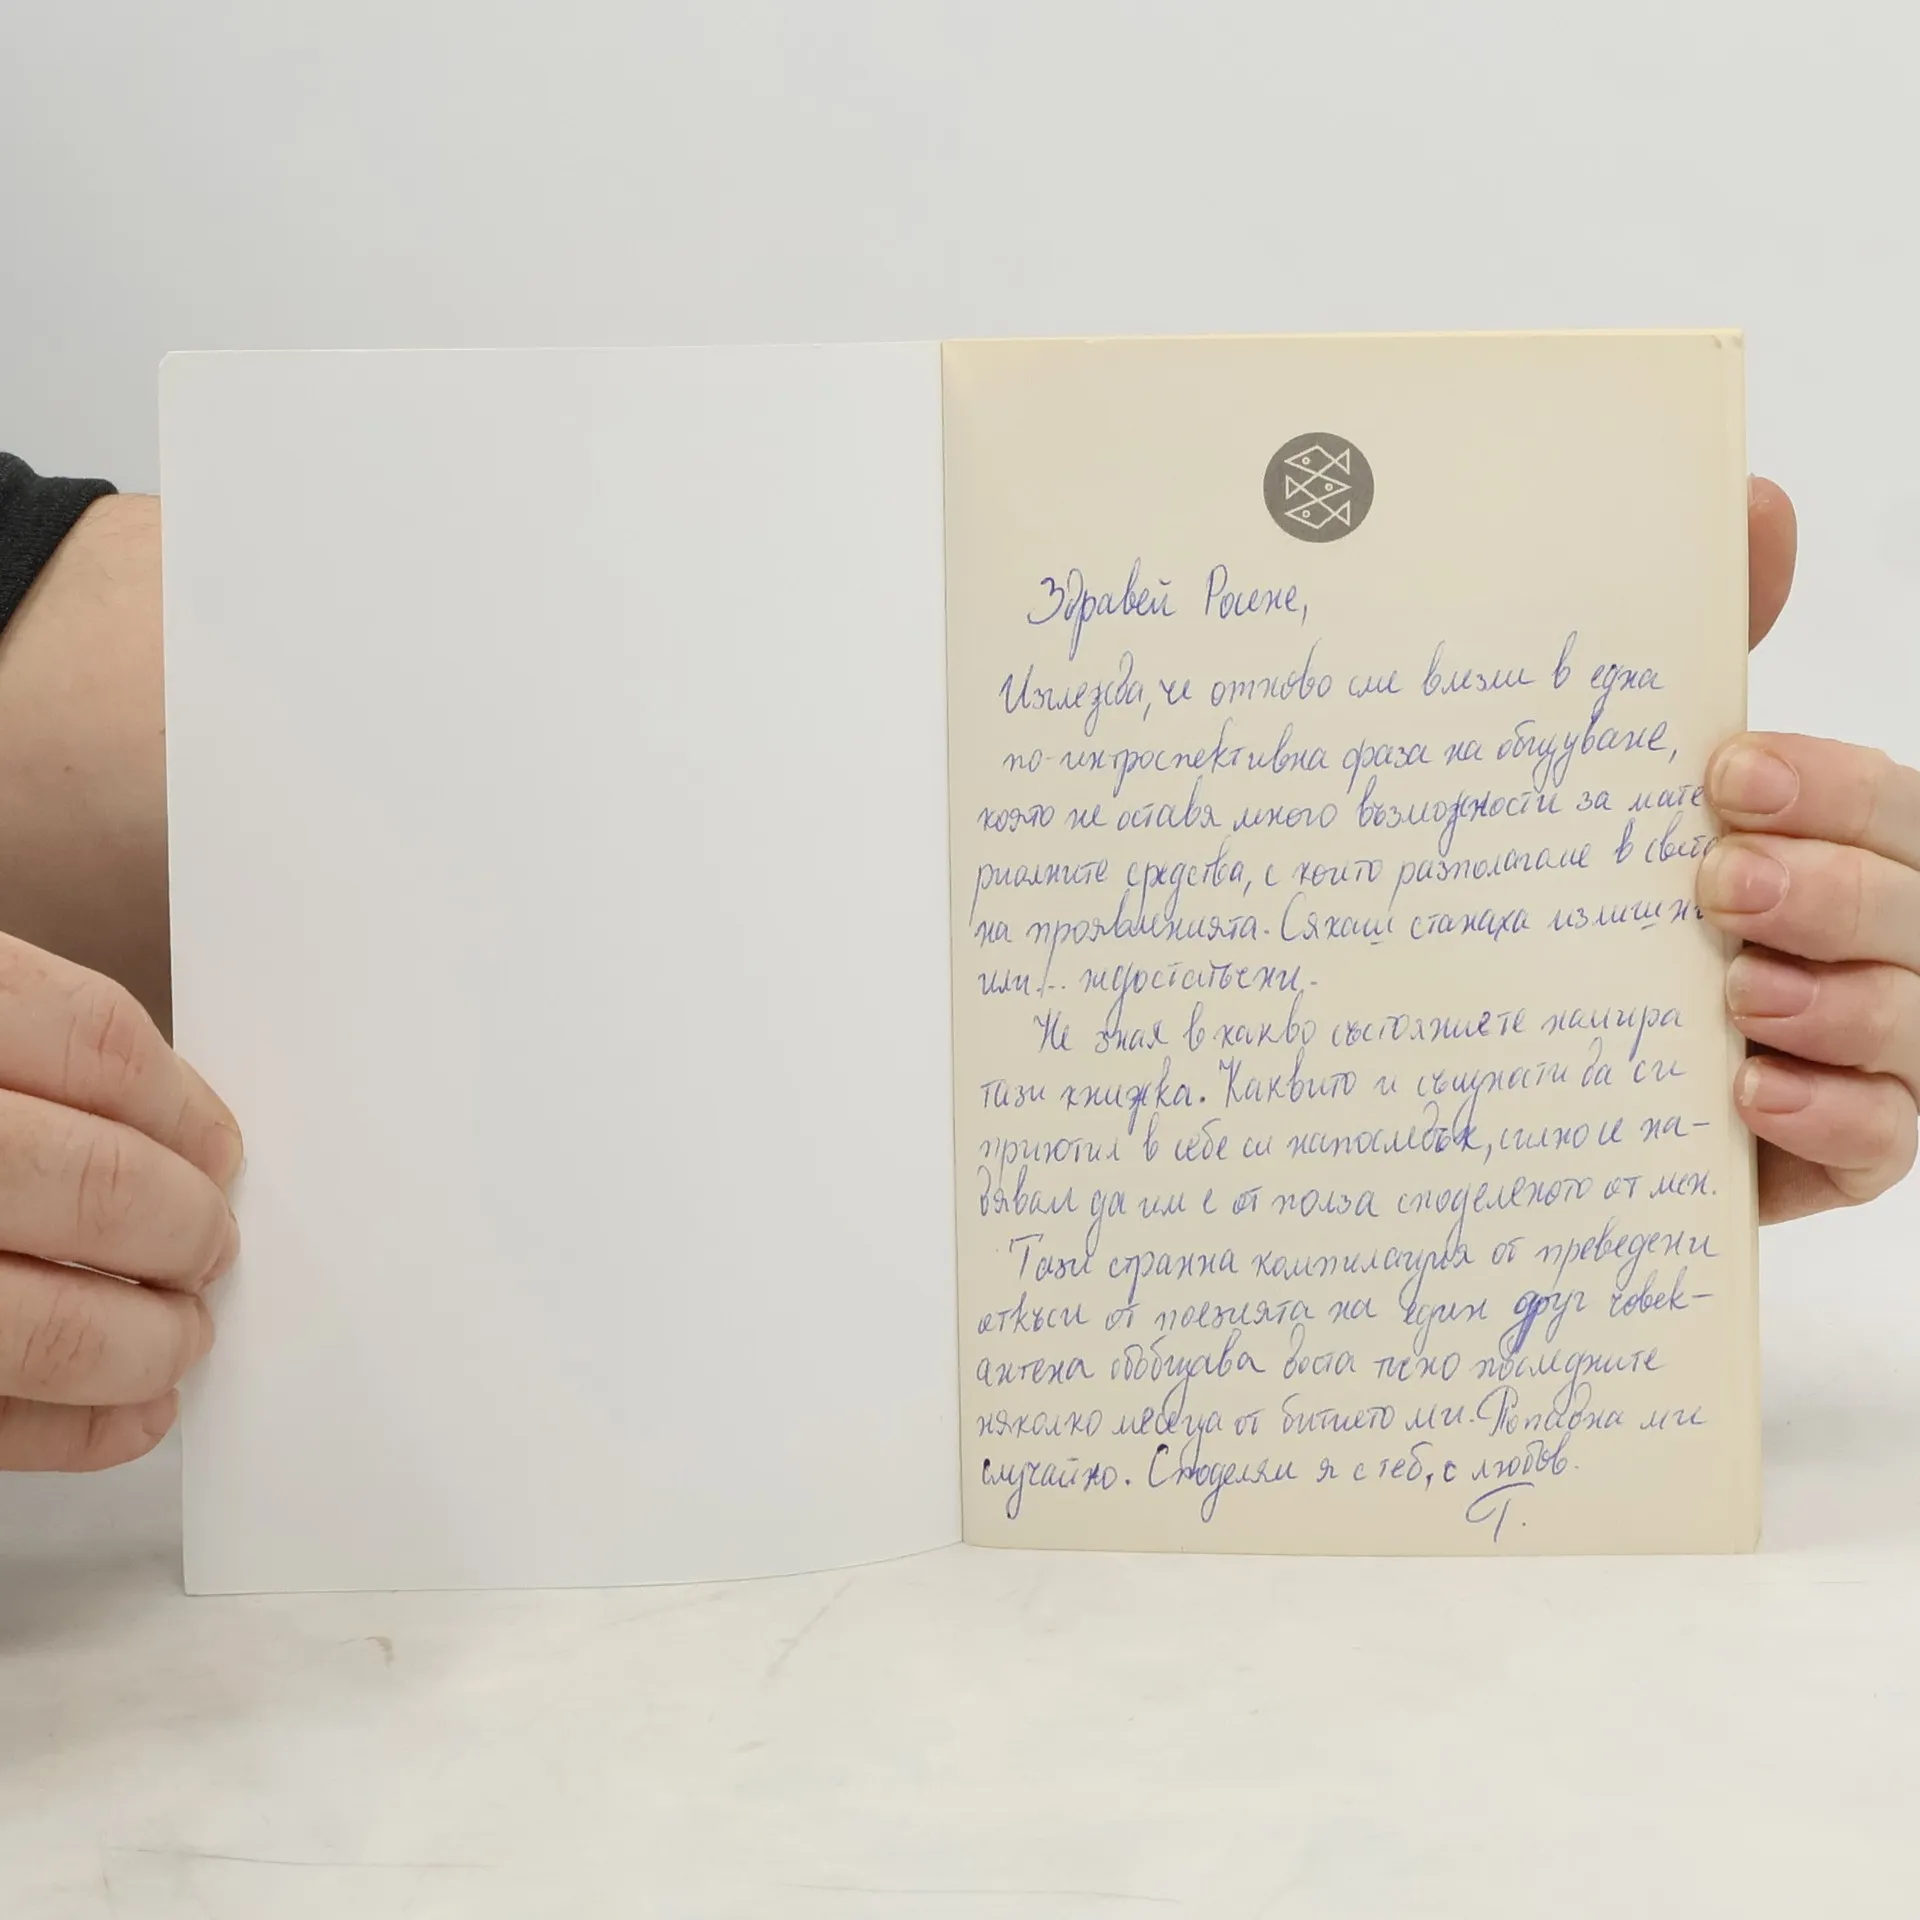 Здравей Росене,
Изглежда, че отново сме влезли в една
по-интроспективна фаза на общуване,
която не оставя много възможности за мате
риалните средства, с които разполагаме в света
на проявленията. Сякаш станаха излишни
или... недостатъчни.
Не зная в какво състояние те намира
тази книжка. Каквито и същности да си
приютил в себе си напоследък, силно се на-
дявам да им е от полза споделеното от мен.
Тази странна компилация от преведени
откъси от поезията на един друг човек-
антена обобщава доста точно последните
няколко месеца от битието ми. Попадна ми
случайно. Споделям я с теб, с любов.
Т.